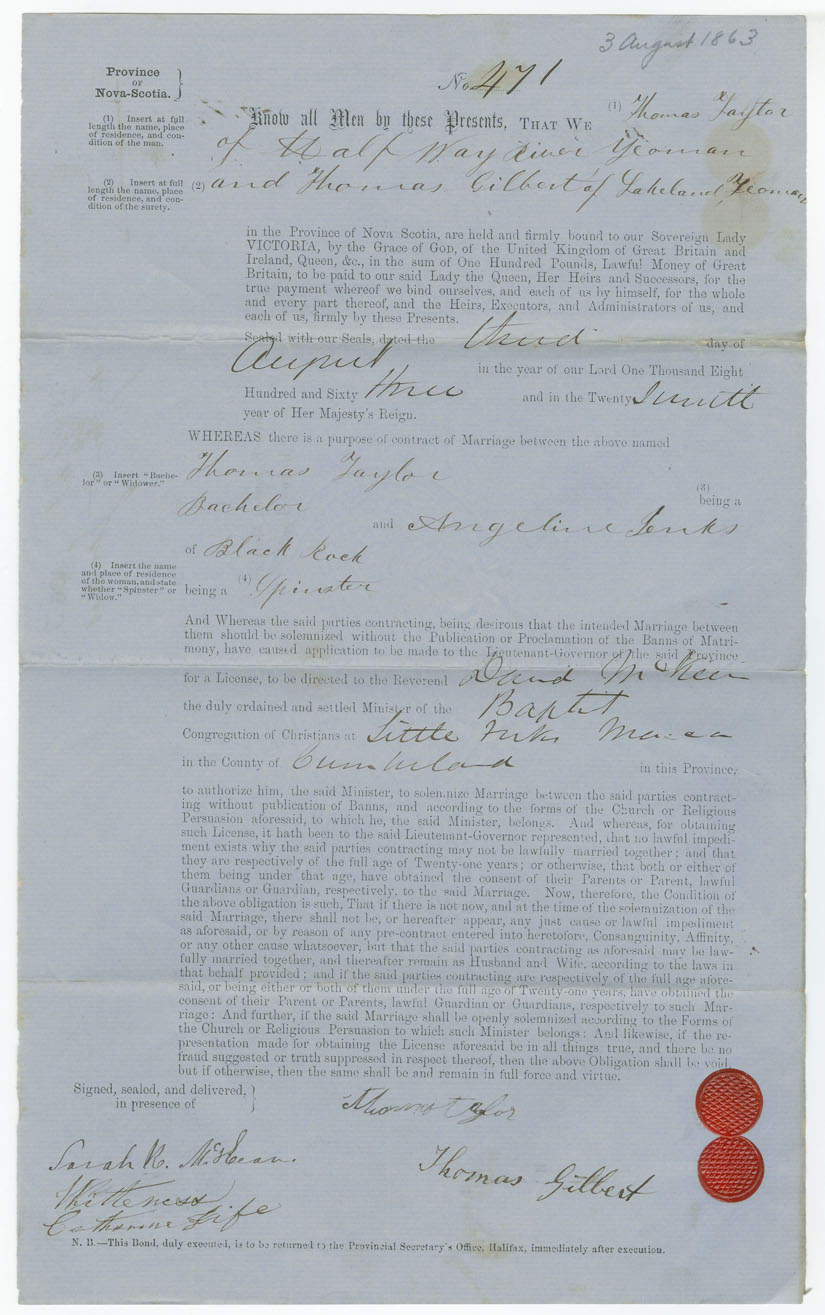 3 August 1863
Province
OF
Nova-Scotia.
No. 471
(1) Insert at full
length the name, place
of residence, and con-
dition of the man.
Know all Men by these Presents, THAT WE (1) Thomas Taylor
of Half Way River Yeoman
(2) Insert at full
length the name, place
of residence, and con-
dition of the surety.
(2) and Thomas Gilbert of Lakeland, Yeoman
in the Province of Nova Scotia, are held and firmly bound to our Sovereign Lady
VICTORIA, by the Grace of GOD, of the United Kingdom of Great Britain and
Ireland, Queen, &c., in the sum of One Hundred Pounds, Lawful Money of Great
Britain, to be paid to our said Lady the Queen, Her Heirs and Successors, for the
true payment whereof we bind ourselves, and each of us by himself, for the whole
and every part thereof, and the Heirs, Executors, and Administrators of us, and
each of us, firmly by these Presents.
Sealed with our Seals, dated the third day of
August in the year of our Lord One Thousand Eight
Hundred and Sixty three and in the Twenty
year of Her Majesty's Reign.
WHEREAS there is a purpose of contract of Marriage between the above named
(3) Insert "Bache-
lor" or "Widower."
Thomas Taylor
(3) being a
Bachelor
and Angeline Jenks
of Black Rock
(4) Insert the name
and place of residence
of the woman, and state
whether "Spinster" or
"Widow."
being a (4) Spinster
And Whereas the said parties contracting, being desirous that the intended Marriage between
them should be solemnized without the Publication or Proclamation of the Banns of Matri-
mony, have caused application to be made to the Lieutenant-Governor of the said Province
for a License, to be directed to the Reverend David McKeen
the duly ordained and settled Minister of the Baptist
Congregation of Christians at Little Forks
in the County of Cumberland in this Province,
to authorize him, the said Minister, to solemnize Marriage between the said parties contract-
ing without publication of Banns, and according to the forms of the Church or Religious
Persuasion aforesaid, to which he, the said Minister, belongs. And whereas, for obtaining
such License, it hath been to the said Lieutenant-Governor represented, that no lawful impedi-
ment exists why the said parties contracting may not be lawfully married together; and that
they are respectively of the full age of Twenty-one years; or otherwise, that both or either of
them being under that age, have obtained the consent of their Parents or Parent, lawful
Guardians or Guardian, respectively, to the said Marriage. Now, therefore, the Condition of
the above obligation is such, That if there is not now, and at the time of the solemnization of the
said Marriage, there shall not be, or hereafter appear, any just cause or lawful impediment
as aforesaid, or by reason of any pre-contract entered into heretofore, Consanguinity, Affinity,
or any other cause whatsoever, but that the said parties contracting as aforesaid may be law-
fully married together, and thereafter remain as Husband and Wife, according to the laws in
that behalf provided; and if the said parties contracting are respectively of the full age afore-
said, or being either or both of them under the full age of Twenty-one years, have obtained the
consent of their Parent or Parents, lawful Guardian or Guardians, respectively to such Mar-
riage: And further, if the said Marriage shall be openly solemnized according to the Forms of
the Church or Religious Persuasion to which such Minister belongs: And likewise, if the re-
presentation made for obtaining the License aforesaid be in all things true, and there be no
fraud suggested or truth suppressed in respect thereof, then the above Obligation shall be void,
but if otherwise, then the same shall be and remain in full force and virtue.
Signed, sealed, and delivered,
in presence of
Thomas Taylor
Sarah R. McKean.
Thomas Gilbert
Whitteness
Catharine Fife
N. B.—This Bond, duly executed, is to be returned to the Provincial Secretary's Office, Halifax, immediately after execution.